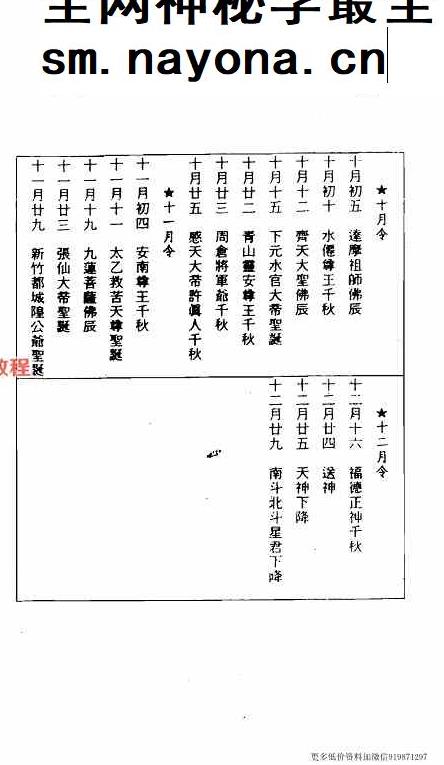 全网神秘学最全
sm.nayona.cn
★十月令
十月初五 達摩祖師佛辰
十月初十 水僊尊王千秋
十月十二 齊天大聖佛辰
十月十五 下元水官大帝聖誕
十月廿二 青山靈安尊王千秋
十月廿三 周倉將軍爺千秋
十月廿五 感天大帝許眞人千秋
★十一月令
十一月初四 安南尊王千秋
十一月十一 太乙救苦天尊聖誕
十一月十九 九蓮菩薩佛辰
十一月廿三 張仙大帝聖誕
十一月廿九 新竹都城隍公爺聖誕
教程
★十二月令
十二月十六 福德正神千秋
十二月廿四 送神
十二月廿五 天神下降
十二月廿九 南斗北斗星君下降
更多低价资料加微信919871297